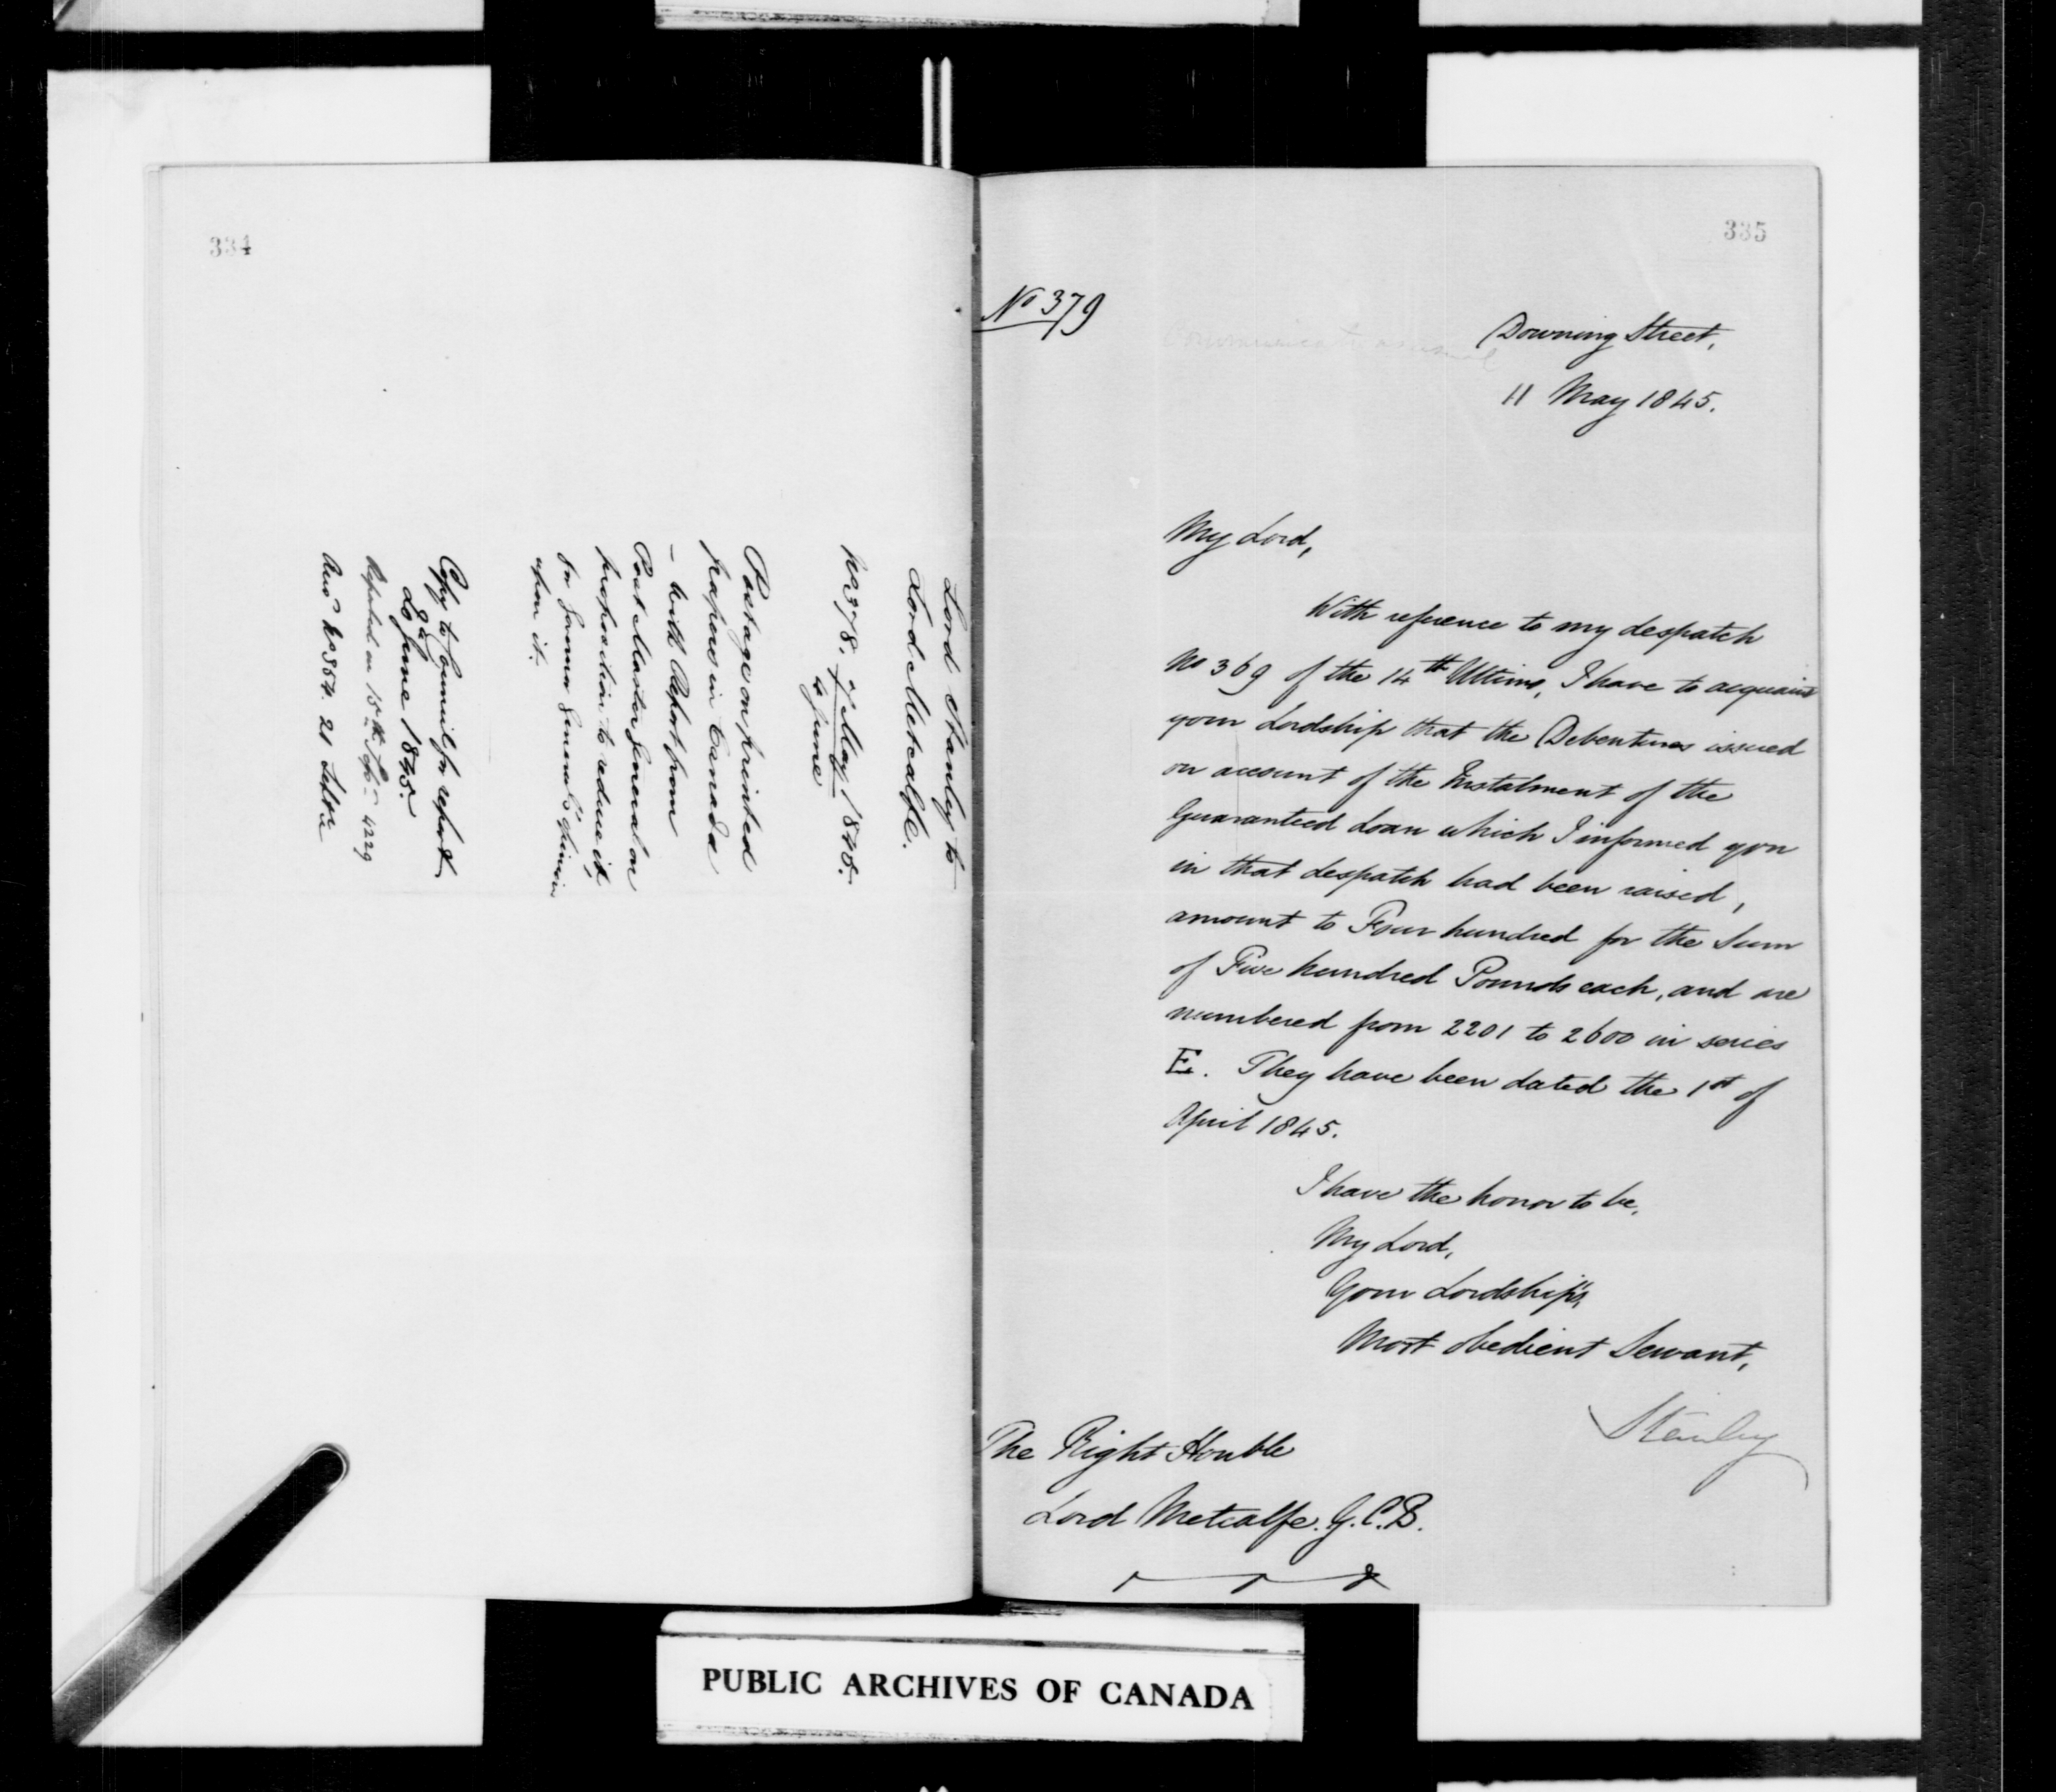 334
Lord Stanley to
Lord Metcalfe.
No 378. of May 1845.
4 June
Postage on printed
papers in Canada
- With Report from
Post Master General on
proposition to reduce it,
for Governor General's opinion
upon it.
Copy to Council for report
20 June 1845.
Reported on 15th 4229
Ansd No 354. 21
335
No 379
Downing Street,
11 May 1845.
My Lord,
With reference to my despatch
No 369 of the 14th Ultimo, I have to acquaint
your Lordship that the Debentures issued
on account of the Instalment of the
Guaranteed Loan which I informed you
in that despatch had been raised,
amount to Four hundred for the Sum
of Five hundred Pounds each, and are
numbered from 2201 to 2600 in series
E. They have been dated the 1st of
April 1845.
I have the honor to be,
My Lord,
Your Lordship's
Most obedient Servant,
Stanley
The Right Honble
Lord Metcalfe. G.C.B.
PUBLIC ARCHIVES OF CANADA